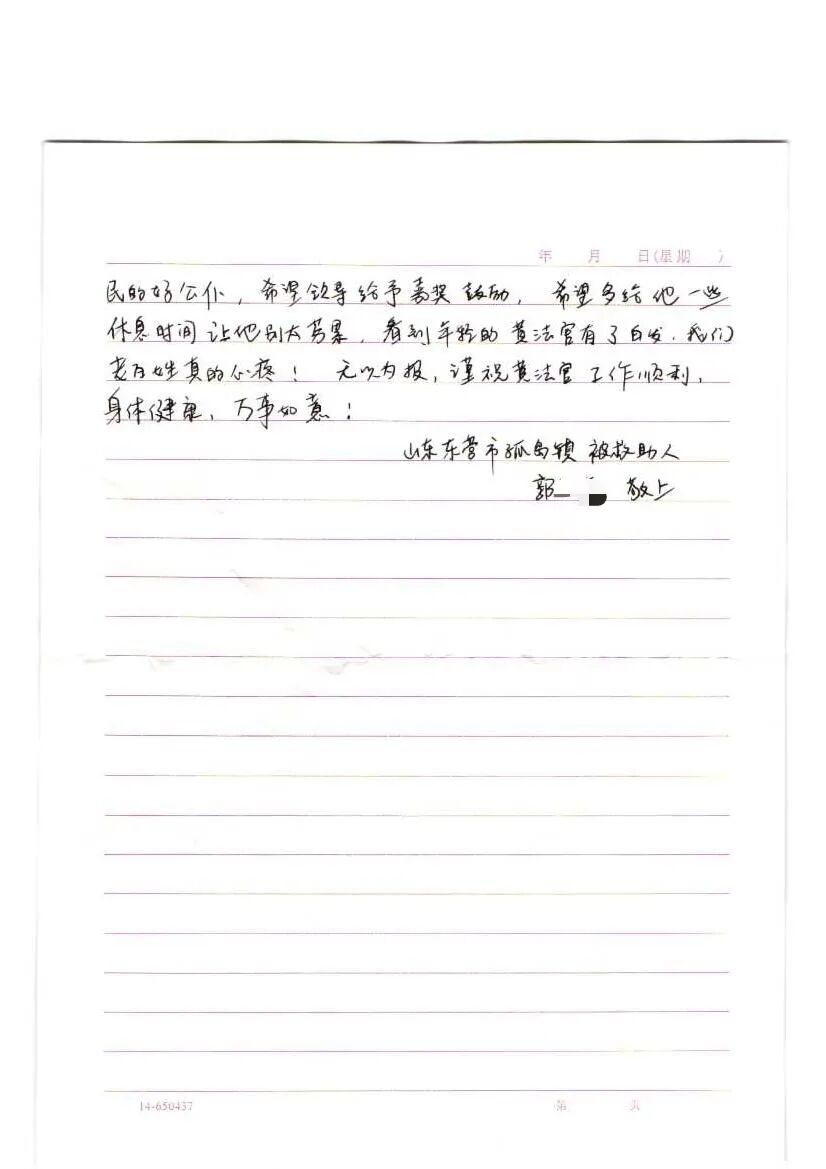 年 月 日(星期 )
民的好公仆，希望领导给予嘉奖鼓励，希望多给他一些
休息时间让他别太劳累，看到年轻的黄法官有了白发，我们
老百姓真的心疼！无以为报，谨祝黄法官工作顺利，
身体健康、万事如意！
山东东营市孤岛镇 被救助人
郭 敬上
14-650437 第 共